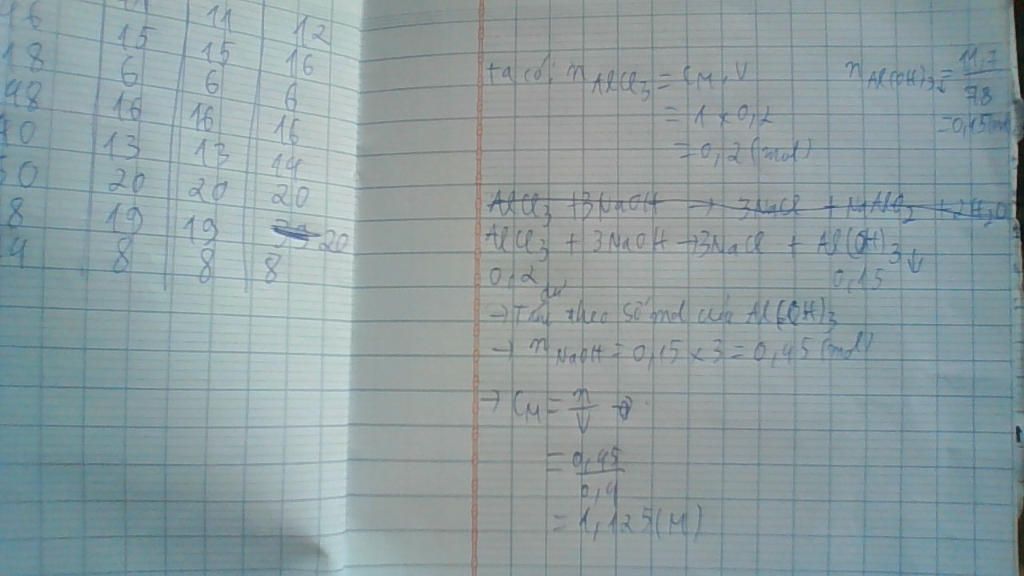 46 11 11 12
18 15 15 16
48 6 6 6
70 16 16 16
30 13 13 14
8 20 20 20
4 19 19 20
8 8 8
ta có: n AlCl3 = CM.V
= 1 x 0,2
= 0,2 (mol)
n Al(OH)3↓ = 11,7/78
= 0,15 mol
AlCl3 + 3NaOH → 3NaCl + NaAlO2 + 2H2O
AlCl3 + 3NaOH → 3NaCl + Al(OH)3↓
0,2 dư 0,15
→ Tính theo số mol của Al(OH)3
→ n NaOH = 0,15 x 3 = 0,45 (mol)
→ CM = n/V
= 0,45/0,4
= 1,125 (M)